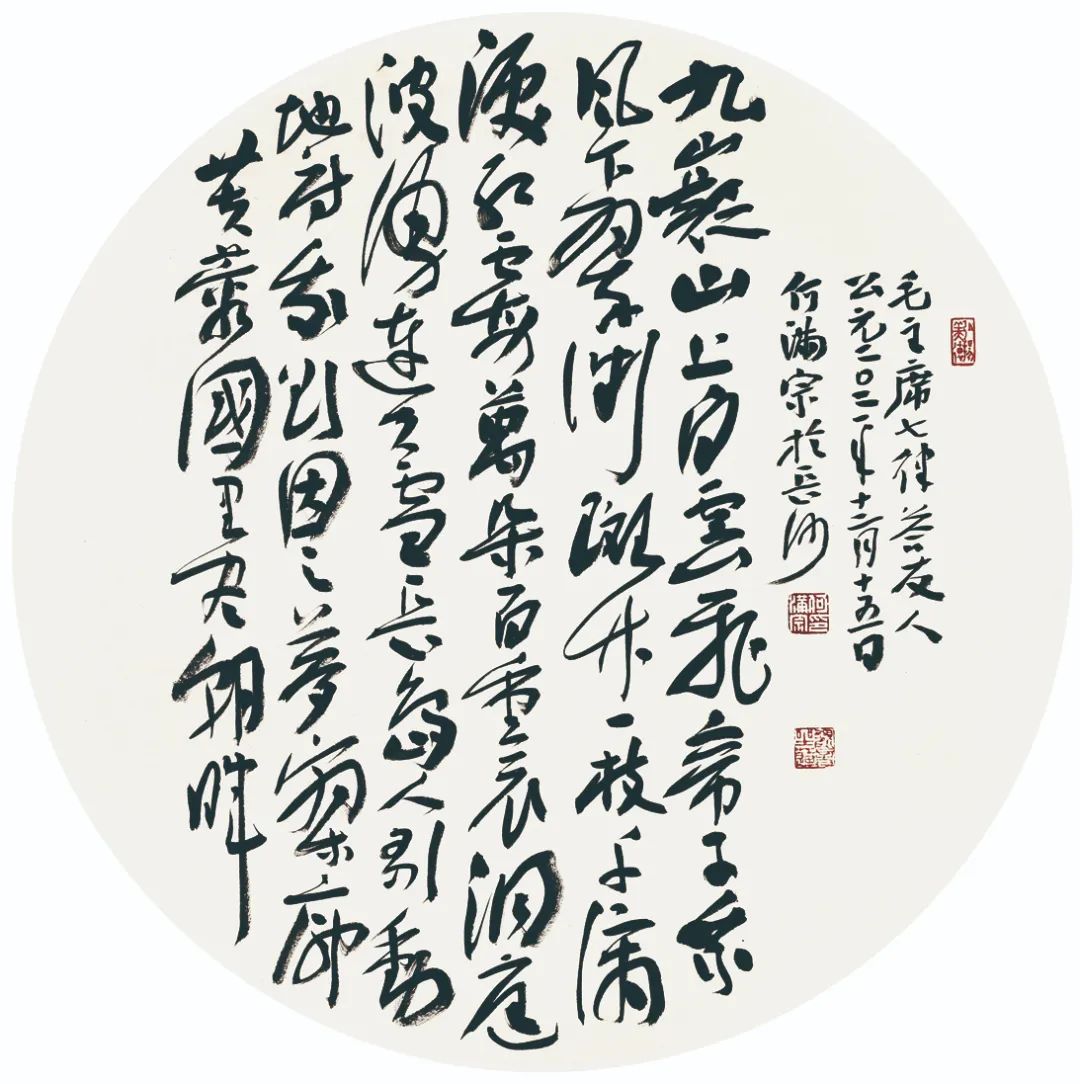 毛主席七律答友人
公元二〇二一年十二月十五日
何满宗於长沙
九嶷山上白雲飛帝子乘
风下翠微斑竹一枝千滴
淚红霞萬朵百重衣洞庭
波湧连天雪长島人歌動
地诗我欲因之夢寥廓
芙蓉國里尽朝晖
何印滿宗